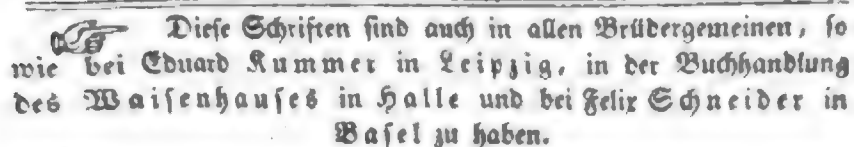 Diese Schriften sind auch in allen Brüdergemeinen, so
wie bei Eduard Kummer in Leipzig, in der Buchhandlung
des Waisenhauses in Halle und bei Felix Schneider in
Basel zu haben.